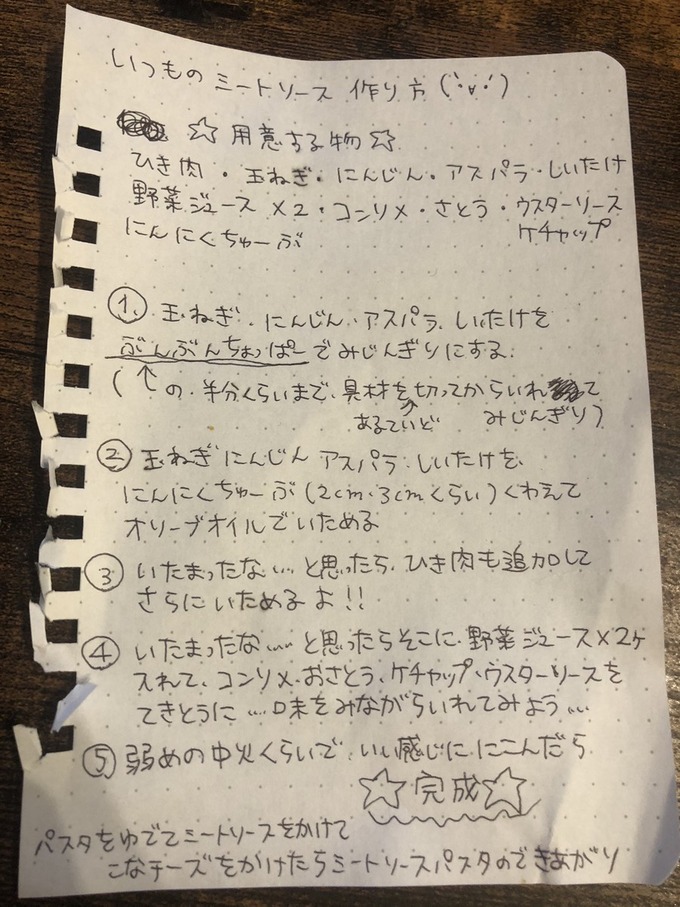 いつものミートソース作り方(˙ᵕ˙)
☆用意する物☆
ひき肉・玉ねぎ・にんじん・アスパラ・しいたけ
野菜ジュース×2・コンソメ・さとう・ウスターソース
ケチャップ
にんにくちゅーぶ
①玉ねぎ、にんじん、アスパラ、しいたけを
ぶんぶんちょっぱーでみじんぎりにする。
(↑の、半分くらいまで、具材を切ってからいれて
あるていど みじんぎり)
②玉ねぎにんじんアスパラ、しいたけを、
にんにくちゅーぶ(2cm、3cmくらい)くわえて
オリーブオイルでいためる
③いたまったな…と思ったら、ひき肉も追加して
さらにいためるよ!!
④いたまったな…と思ったらそこに、野菜ジュース×2ヶ
入れて、コンソメ、おさとう、ケチャップ、ウスターソースを
てきとうに…味をみながらいれてみよう…
⑤弱めの中火くらいで、いい感じに、にこんだら
☆完成☆
パスタをゆでてミートソースをかけて
こなチーズをかけたらミートソースパスタのできあがり